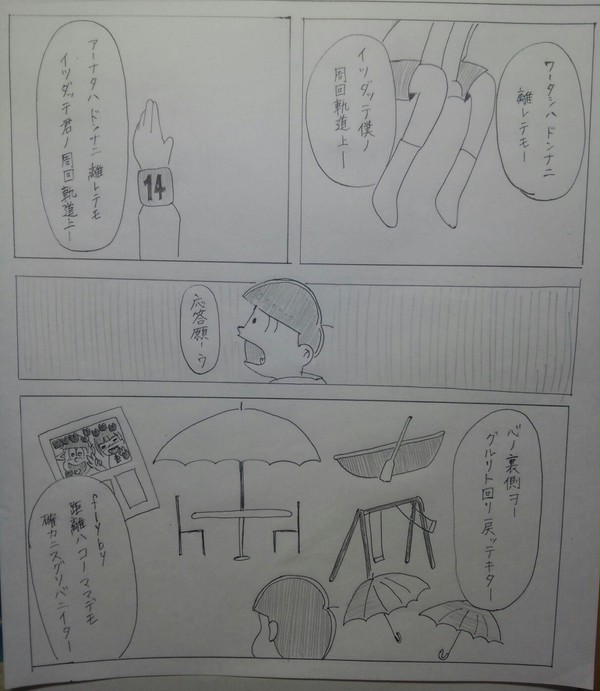 ワータシハ ドンナニ
離レテモー
イツダッテ僕ノ
周回軌道上ー
アーナタハ ドンナニ 離レテモ
イツダッテ君ノ 周回軌道上ー
14
応答願ーウ
ベノ裏側ヨー
グルリト回リ戻ッテキター
fly by
距離ハコーノママデモ
確カニスグソバニイター